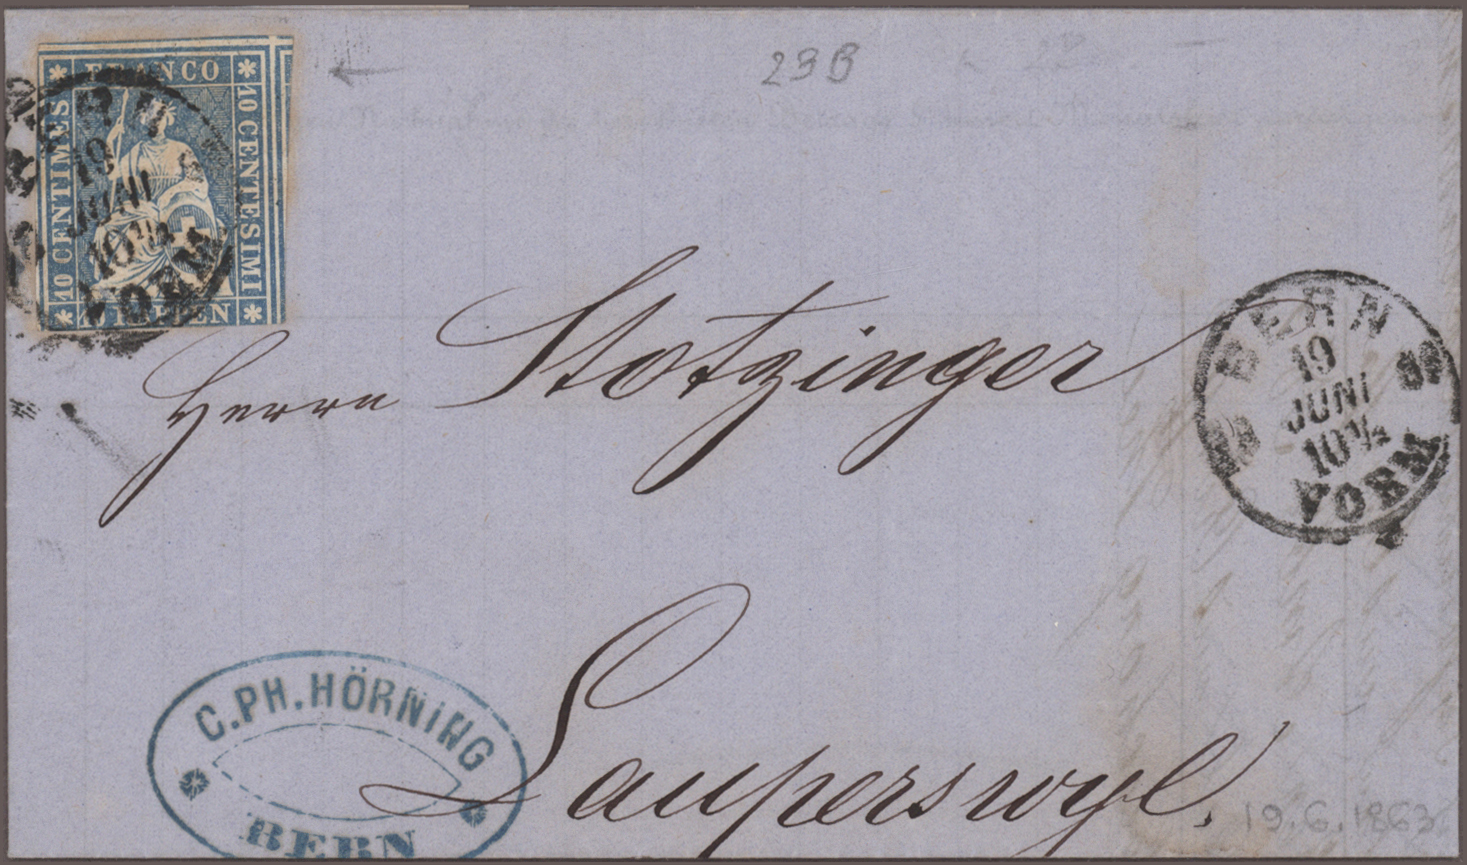 FRANCO
10 CENTIMES
10 CENTESIMI
BERN
19
JUNI
10½
VORM
23B
Herrn Stotzinger
BERN
19
JUNI
10½
VORM
C.PH.HÖRNING
BERN
Lauperswyl.
19.6.1863